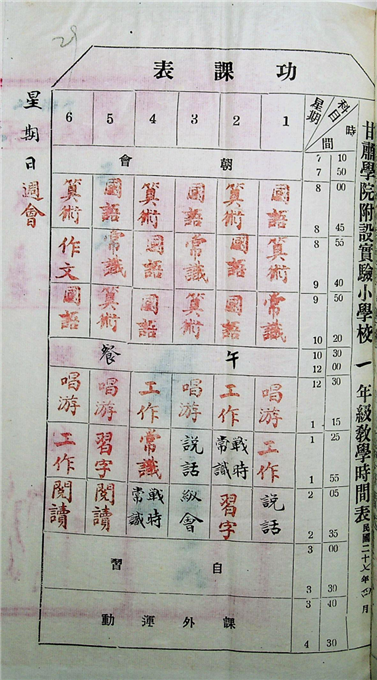 甘肅學院附設實驗小學校一年級教學時間表
民國二十七年 月
功課表
科目 時間 星期
1 2 3 4 5 6
7 10
朝會
7 50
8 00
國語 算術 國語 算術 國語 算術
8 45
8 55
算術 國語 常識 國語 常識 作文
9 40
9 50
常識 算術 算術 國語 算術 國語
10 20
10 30
午餐
12 00
12 30
唱游 工作 唱游 工作 唱游 唱游
1 15
1 25
工作 戰時常識 說話 常識 習字 工作
1 55
2 05
說話 習字 級會 戰時常識 閱讀 閱讀
2 35
3 00
自習
3 30
3 40
課外運動
4 30
星期日週會
29